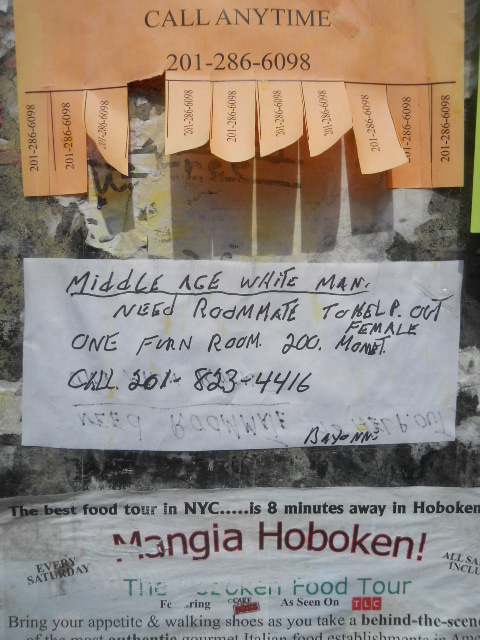 CALL ANYTIME
201-286-6098
201-286-6098
201-286-6098
201-286-6098
201-286-6098
201-286-6098
201-286-6098
201-286-6098
201-286-6098
201-286-6098
201-286-6098
MIDDLE AGE WHITE MAN.
NEED ROOMMATE TO HELP. OUT
FEMALE
ONE FURN ROOM. 200. MOMET.
CALL. 201-823-4416
NEED ROOMMATE HELP OUT
BAYONNE
The best food tour in NYC.....is 8 minutes away in Hoboken
Mangia Hoboken!
EVERY SATURDAY
ALL SA
INCLU
The Hoboken Food Tour
Fe ring CAKE BOSS As Seen On TLC
Bring your appetite & walking shoes as you take a behind-the-scene
of the most authentic gourmet Italian food establishments in Ame